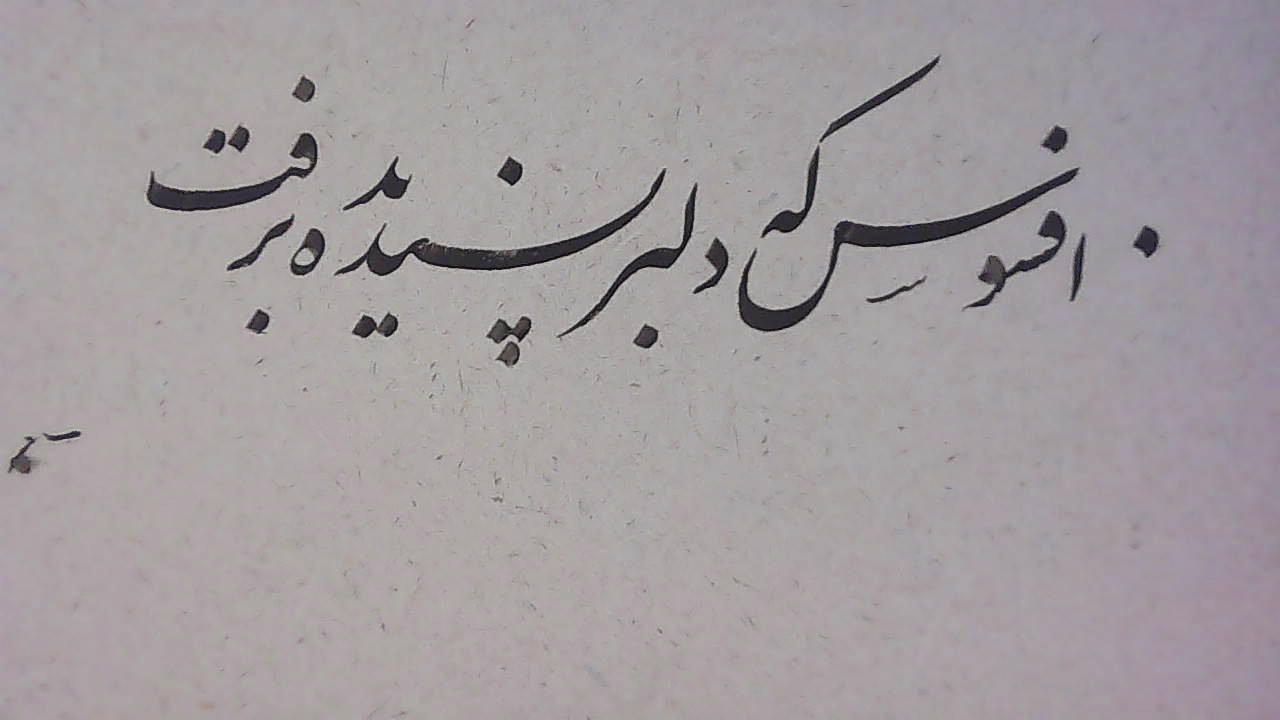 افسوس که دلبر پسندیده برفت